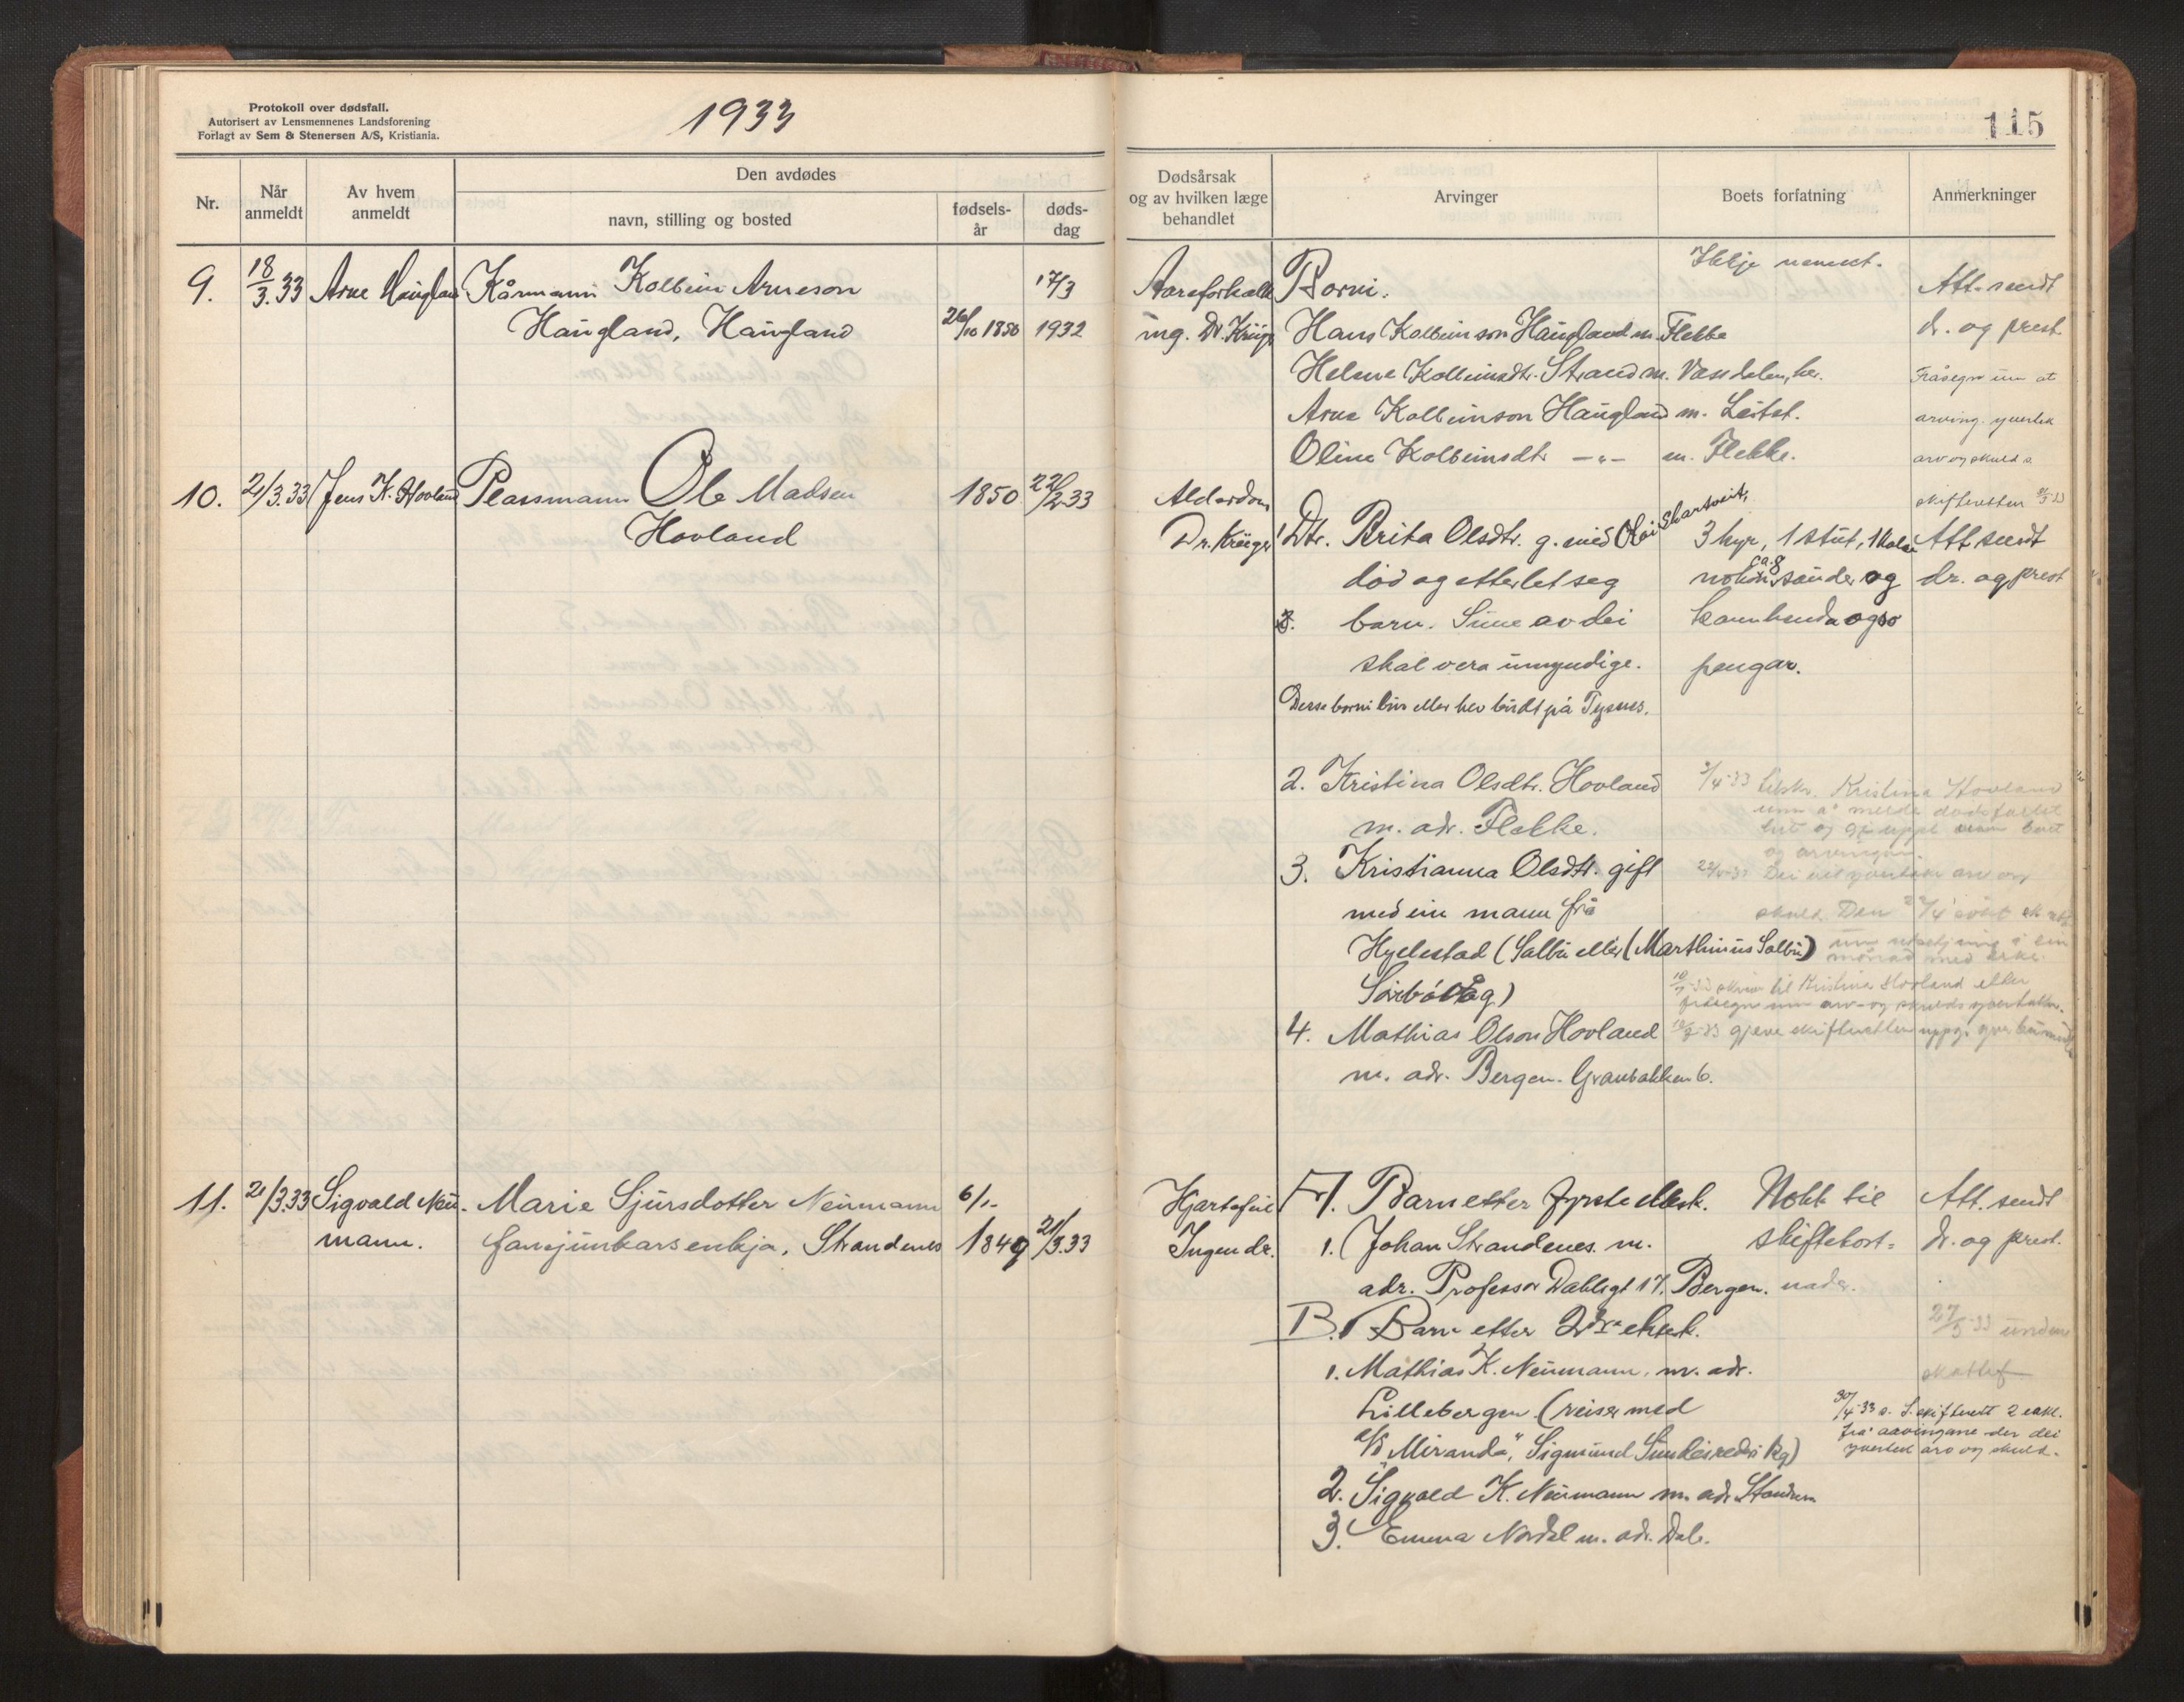 Protokoll over dødsfall.
Autorisert av Lensmennenes Landsforening
Forlagt av Sem & Stenersen A/S, Kristiania.
1933
115
Nr.
Når anmeldt
Av hvem anmeldt
Den avdødes
navn, stilling og bosted
fødsels-år
døds-dag
Dødsårsak og av hvilken læge behandlet
Arvinger
Boets forfatning
Anmerkninger
9. 18/3.33 Arne Haugland Kårmann Kolbein Arneson 17/3
Haugland, Haugland 26/10 1850 1932
Aareforkalk
ing. Dr. Krüger
Borni:
Hans Kolbeinson Haugland m. Flekke
Helene Kolbeinsdtr. Strand m. Vasdalen, her.
Arne Kolbeinson Haugland m. Leitet.
Oline Kolbeinsdtr. -"- m. Flekke.
Ikkje nemnt.
Att. sendt
dr. og prest.
Fråsegn um at
arving. yvertek
arv og skuld s.
skifteretten
10. 21/3.33 Jens K. Hovland Plassmann Ole Madsen 1850 22/2 33
Hovland
Alderdom
Dr. Krüger
1 Dtr. Brita Olsdtr. g. med Ola Skartveit,
død og etterlet seg
3. barn. Sume av dei
skal vera umyndige.
Desse borni bur eller hev budt på Tysnes.
2. Kristina Olsdtr. Hovland
m. adr. Flekke.
3. Kristianna Olsdtr. gift
med ein mann frå
Hyllestad (Salbu eller (Marthinus Salbu)
Sørbøvåg)
4. Mathias Olson Hovland
m. adr. Bergen. Granbakken 6.
3 kyr, 1 stut, 1 kalv
nokon ca. 8 sauder og
kannhenda ogso
pengar.
Att sendt
dr. og prest
Kristina Hovland
um å melda dødsfallet
og arvingar.
Dei vil yvertaka arv og
skuld. Den
skriv til Kristina Hovland etter
fråsegn um arv- og skulds
gjeve skifteretten uppg.
11. 21/3.33 Sigvald Neu- Marie Sjursdotter Neumann 6/1-
mann. fanejunkarsenkja, Strandenes 1849 21/3.33
Hjartefeil
Ingen dr.
A. Barn etter fyrste ektesk.
1. Johan Strandenes m.
adr. Professor Dahlsgt 17. Bergen.
B. Barn etter 2dre ektesk.
1. Mathias K. Neumann, m. adr.
Lillebergen (reiser med
"Miranda", Sigmund
2. Sigvald K. Neumann m. adr.
3. Emma Nordal m. adr. Dale.
Nokk til
skiftekost-
nader.
Att. sendt
dr. og prest.
30/4-33 s. S. skifterett 2 erkl.
frå arvingane der dei
yvertek arv og skuld.